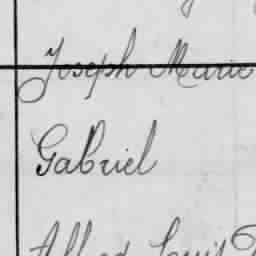 Joseph Marie
Gabriel
Alfred Louis